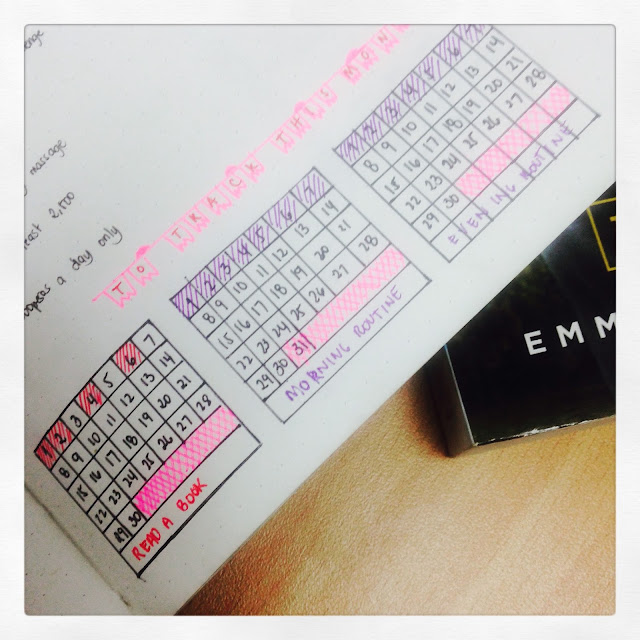 massage
2,500
a day only
TO TRACK THIS MON
1 2 3 4 5 6 7
8 9 10 11 12 13 14
15 16 17 18 19 20 21
22 23 24 25 26 27 28
29 30
READ A BOOK
1 2 3 4 5 6 7
8 9 10 11 12 13 14
15 16 17 18 19 20 21
22 23 24 25 26 27 28
29 30 31
MORNING ROUTINE
8 9 10 11 12 13 14
15 16 17 18 19 20 21
22 23 24 25 26 27 28
29 30
EVENING ROUTINE
EMM